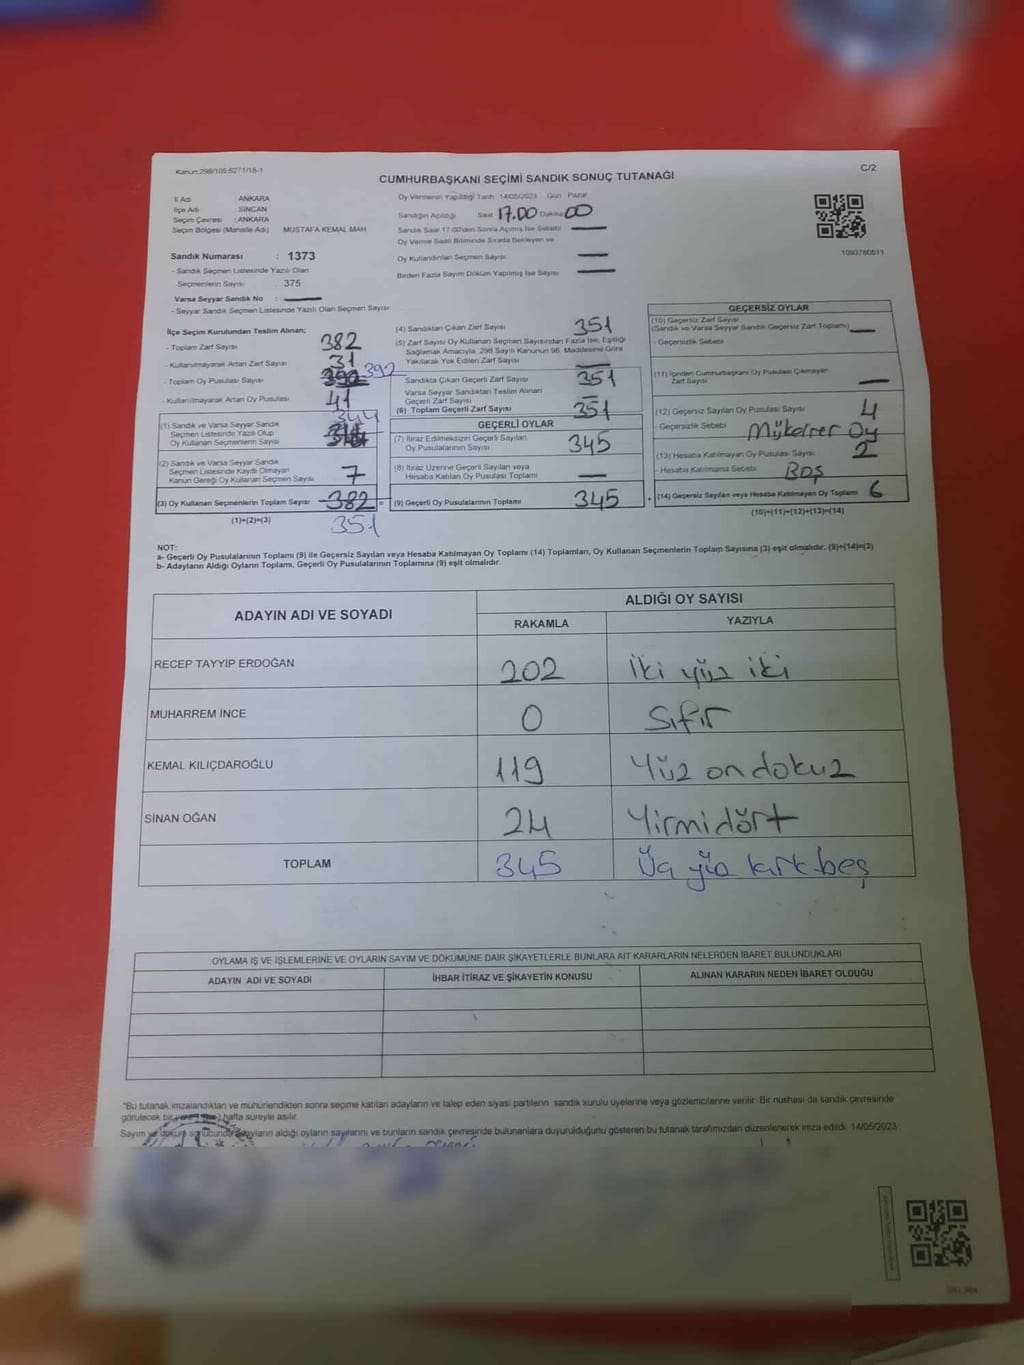 Kanun:298/105;6271/18-1
C/2
CUMHURBAŞKANI SEÇİMİ SANDIK SONUÇ TUTANAĞI
İl Adı ANKARA
İlçe Adı SİNCAN
Seçim Çevresi : ANKARA
Seçim Bölgesi (Mahalle Adı) MUSTAFA KEMAL MAH
Sandık Numarası : 1373
- Sandık Seçmen Listesinde Yazılı Olan
Seçmenlerin Sayısı : 375
Varsa Seyyar Sandık No :
- Seyyar Sandık Seçmen Listesinde Yazılı Olan Seçmen Sayısı
Oy Vermenin Yapıldığı Tarih :14/05/2023 Gün : Pazar
Sandığın Açıldığı Saat 17.00 Dakika 00
Sandık Saat 17:00'den Sonra Açılmış İse Sebebi
Oy Verme Saati Bitiminde Sırada Bekleyen ve
Oy Kullandırılan Seçmen Sayısı
Birden Fazla Sayım Döküm Yapılmış İse Sayısı
1093780511
İlçe Seçim Kurulundan Teslim Alınan;
- Toplam Zarf Sayısı 382
- Kullanılmayarak Artan Zarf Sayısı 31
- Toplam Oy Pusulası Sayısı 392
- Kullanılmayarak Artan Oy Pusulası 41
344
(1) Sandık ve Varsa Seyyar Sandık
Seçmen Listesinde Yazılı Olup
Oy Kullanan Seçmenlerin Sayısı
(2) Sandık ve Varsa Seyyar Sandık
Seçmen Listesinde Kayıtlı Olmayan
Kanun Gereği Oy Kullanan Seçmen Sayısı 7
(3) Oy Kullanan Seçmenlerin Toplam Sayısı 382 =
(1)+(2)=(3) 351
(4) Sandıktan Çıkan Zarf Sayısı 351
(5) Zarf Sayısı Oy Kullanan Seçmen Sayısından Fazla İse, Eşitliği
Sağlamak Amacıyla, 298 Sayılı Kanunun 98. Maddesine Göre
Yakılarak Yok Edilen Zarf Sayısı
Sandıkta Çıkan Geçerli Zarf Sayısı 351
Varsa Seyyar Sandıktan Teslim Alınan
Geçerli Zarf Sayısı
(6) Toplam Geçerli Zarf Sayısı 351
GEÇERLİ OYLAR
(7) İtiraz Edilmeksizin Geçerli Sayılan
Oy Pusulalarının Sayısı 345
(8) İtiraz Üzerine Geçerli Sayılan veya
Hesaba Katılan Oy Pusulası Toplamı
(9) Geçerli Oy Pusulalarının Toplamı 345 +
GEÇERSİZ OYLAR
(10) Geçersiz Zarf Sayısı
(Sandık ve Varsa Seyyar Sandık Geçersiz Zarf Toplamı)
- Geçersizlik Sebebi
(11) İçinden Cumhurbaşkanı Oy Pusulası Çıkmayan
Zarf Sayısı
(12) Geçersiz Sayılan Oy Pusulası Sayısı 4
- Geçersizlik Sebebi Mükerrer Oy
(13) Hesaba Katılmayan Oy Pusulası Sayısı 2
- Hesaba Katılmama Sebebi Boş
(14) Geçersiz Sayılan veya Hesaba Katılmayan Oy Toplamı 6
(10)+(11)+(12)+(13)=(14)
NOT:
a- Geçerli Oy Pusulalarının Toplamı (9) ile Geçersiz Sayılan veya Hesaba Katılmayan Oy Toplamı (14) Toplamları, Oy Kullanan Seçmenlerin Toplam Sayısına (3) eşit olmalıdır. (9)+(14)=(3)
b- Adayların Aldığı Oyların Toplamı, Geçerli Oy Pusulalarının Toplamına (9) eşit olmalıdır.
ADAYIN ADI VE SOYADI
ALDIĞI OY SAYISI
RAKAMLA YAZIYLA
RECEP TAYYİP ERDOĞAN 202 İki yüz iki
MUHARREM İNCE 0 Sıfır
KEMAL KILIÇDAROĞLU 119 Yüz on dokuz
SİNAN OĞAN 24 Yirmidört
TOPLAM 345 Üç yüz kırk beş
OYLAMA İŞ VE İŞLEMLERİNE VE OYLARIN SAYIM VE DÖKÜMÜNE DAİR ŞİKAYETLERLE BUNLARA AİT KARARLARIN NELERDEN İBARET BULUNDUKLARI
ADAYIN ADI VE SOYADI İHBAR İTİRAZ VE ŞİKAYETİN KONUSU ALINAN KARARIN NEDEN İBARET OLDUĞU
"Bu tutanak imzalandıktan ve mühürlendikten sonra seçime katılan adayların ve talep eden siyasi partilerin sandık kurulu üyelerine veya gözlemcilerine verilir. Bir nüshası da sandık çevresinde
görülecek bir yere hafta süreyle asılır.
Sayım ve döküm sonucunda adayların aldığı oyların sayılarını ve bunların sandık çevresinde bulunanlara duyurulduğunu gösteren bu tutanak tarafımızdan düzenlenerek imza edildi. 14/05/2023